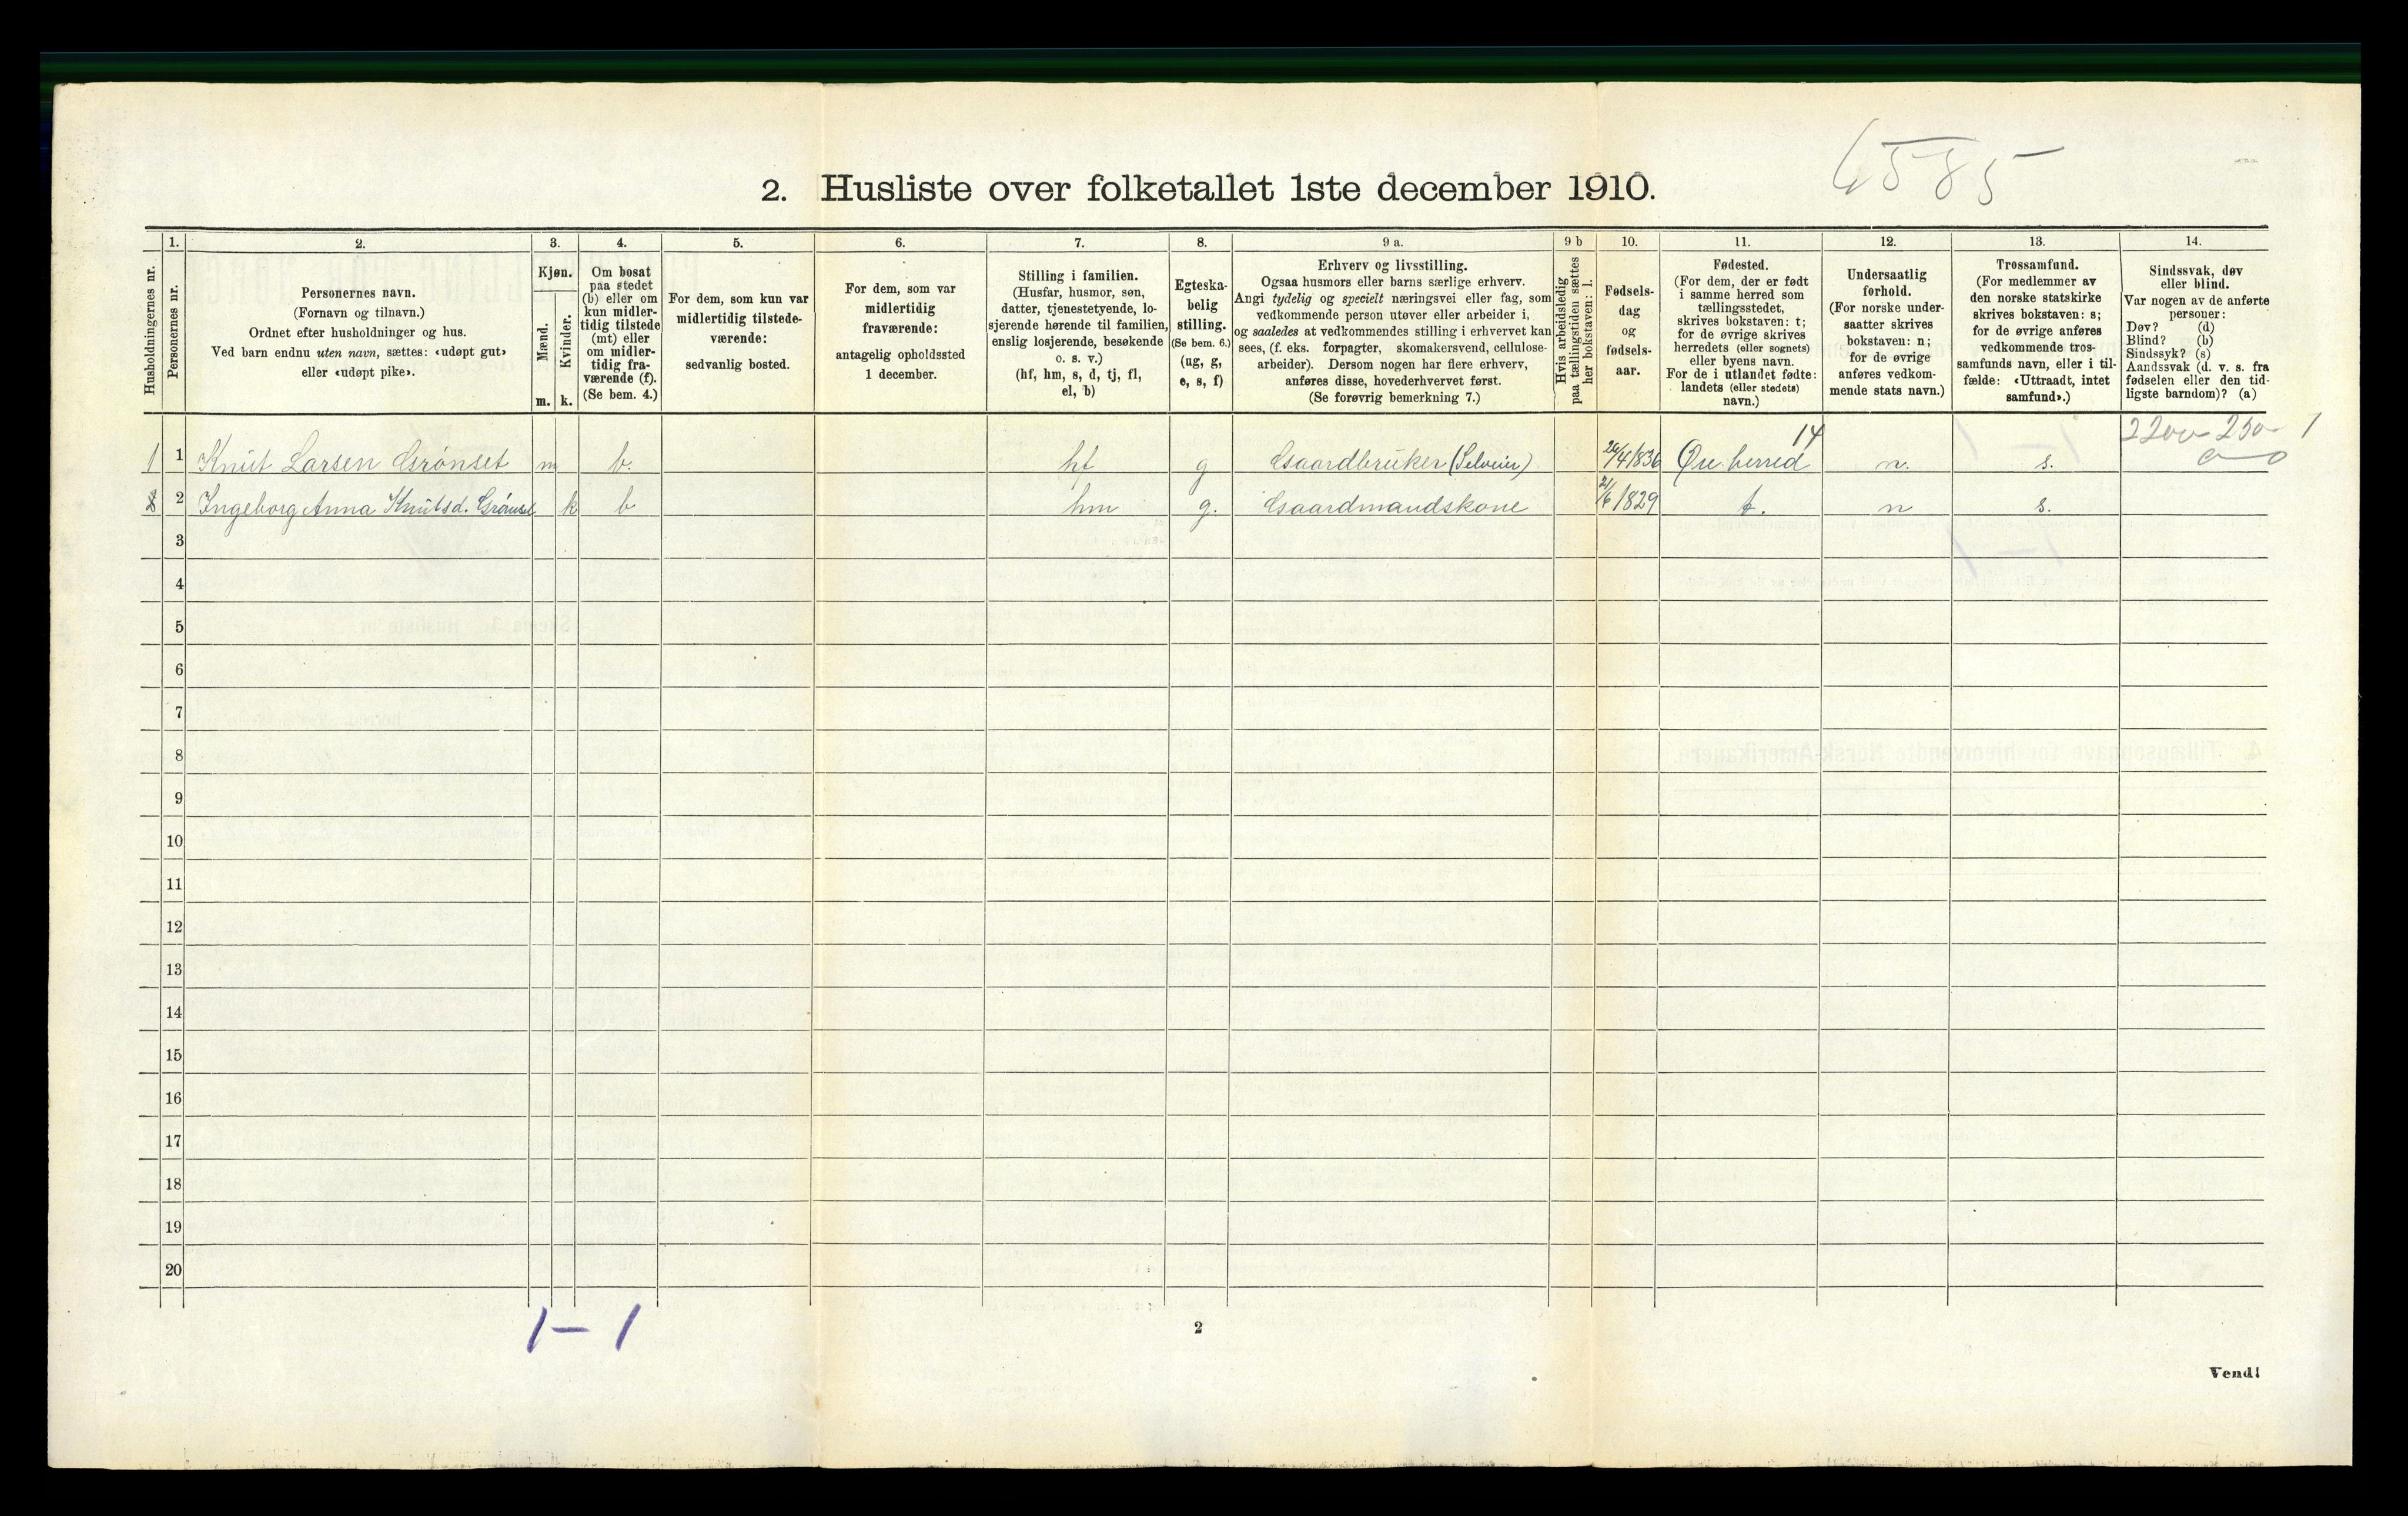 6585
2. Husliste over folketallet 1ste december 1910.
Husholdningernes nr.
1.
Personernes nr.
2.
Personernes navn.
(Fornavn og tilnavn.)
Ordnet efter husholdninger og hus.
Ved barn endnu uten navn, sættes: «udøpt gut»
eller «udøpt pike».
3.
Kjøn.
Mænd.
Kvinder.
m. k.
4.
Om bosat
paa stedet
(b) eller om
kun midler-
tidig tilstede
(mt) eller
om midler-
tidig fra-
værende (f).
(Se bem. 4.)
5.
For dem, som kun var
midlertidig tilstede-
værende:
sedvanlig bosted.
6.
For dem, som var
midlertidig
fraværende:
antagelig opholdssted
1 december.
7.
Stilling i familien.
(Husfar, husmor, søn,
datter, tjenestetyende, lo-
sjerende hørende til familien,
enslig losjerende, besøkende
o. s. v.)
(hf, hm, s, d, tj, fl,
el, b)
8.
Egteska-
belig
stilling.
(Se bem. 6.)
(ug, g,
e, s, f)
9 a.
Erhverv og livsstilling.
Ogsaa husmors eller barns særlige erhverv.
Angi tydelig og specielt næringsvei eller fag, som
vedkommende person utøver eller arbeider i,
og saaledes at vedkommendes stilling i erhvervet kan
sees, (f. eks. forpagter, skomakersvend, cellulose-
arbeider). Dersom nogen har flere erhverv,
anføres disse, hovederhvervet først.
(Se forøvrig bemerkning 7.)
9 b
Hvis arbeidsledig
paa tællingstiden sættes
her bokstaven: l.
10.
Fødsels-
dag
og
fødsels-
aar.
11.
Fødested.
(For dem, der er født
i samme herred som
tællingsstedet,
skrives bokstaven: t;
for de øvrige skrives
herredets (eller sognets)
eller byens navn.
For de i utlandet fødte:
landets (eller stedets)
navn.)
12.
Undersaatlig
forhold.
(For norske under-
saatter skrives
bokstaven: n;
for de øvrige
anføres vedkom-
mende stats navn.)
13.
Trossamfund.
(For medlemmer av
den norske statskirke
skrives bokstaven: s;
for de øvrige anføres
vedkommende tros-
samfunds navn, eller i til-
fælde: «Uttraadt, intet
samfund».)
14.
Sindssvak, døv
eller blind.
Var nogen av de anførte
personer:
Døv? (d)
Blind? (b)
Sindssyk? (s)
Aandssvak (d. v. s. fra
fødselen eller den tid-
ligste barndom)? (a)
14
1 1 Knut Larsen Grønset m b. hf g Gaardbruker (Selveier) 29/4 1836 Øre herred n. s.
2 Ingeborg Anna Knutsd. Grønset k b hm g. Gaardmandskone 21/6 1829 t. n s.
3
4
5
6
7
8
9
10
11
12
13
14
15
16
17
18
19
20
1 – 1
2
Vend!